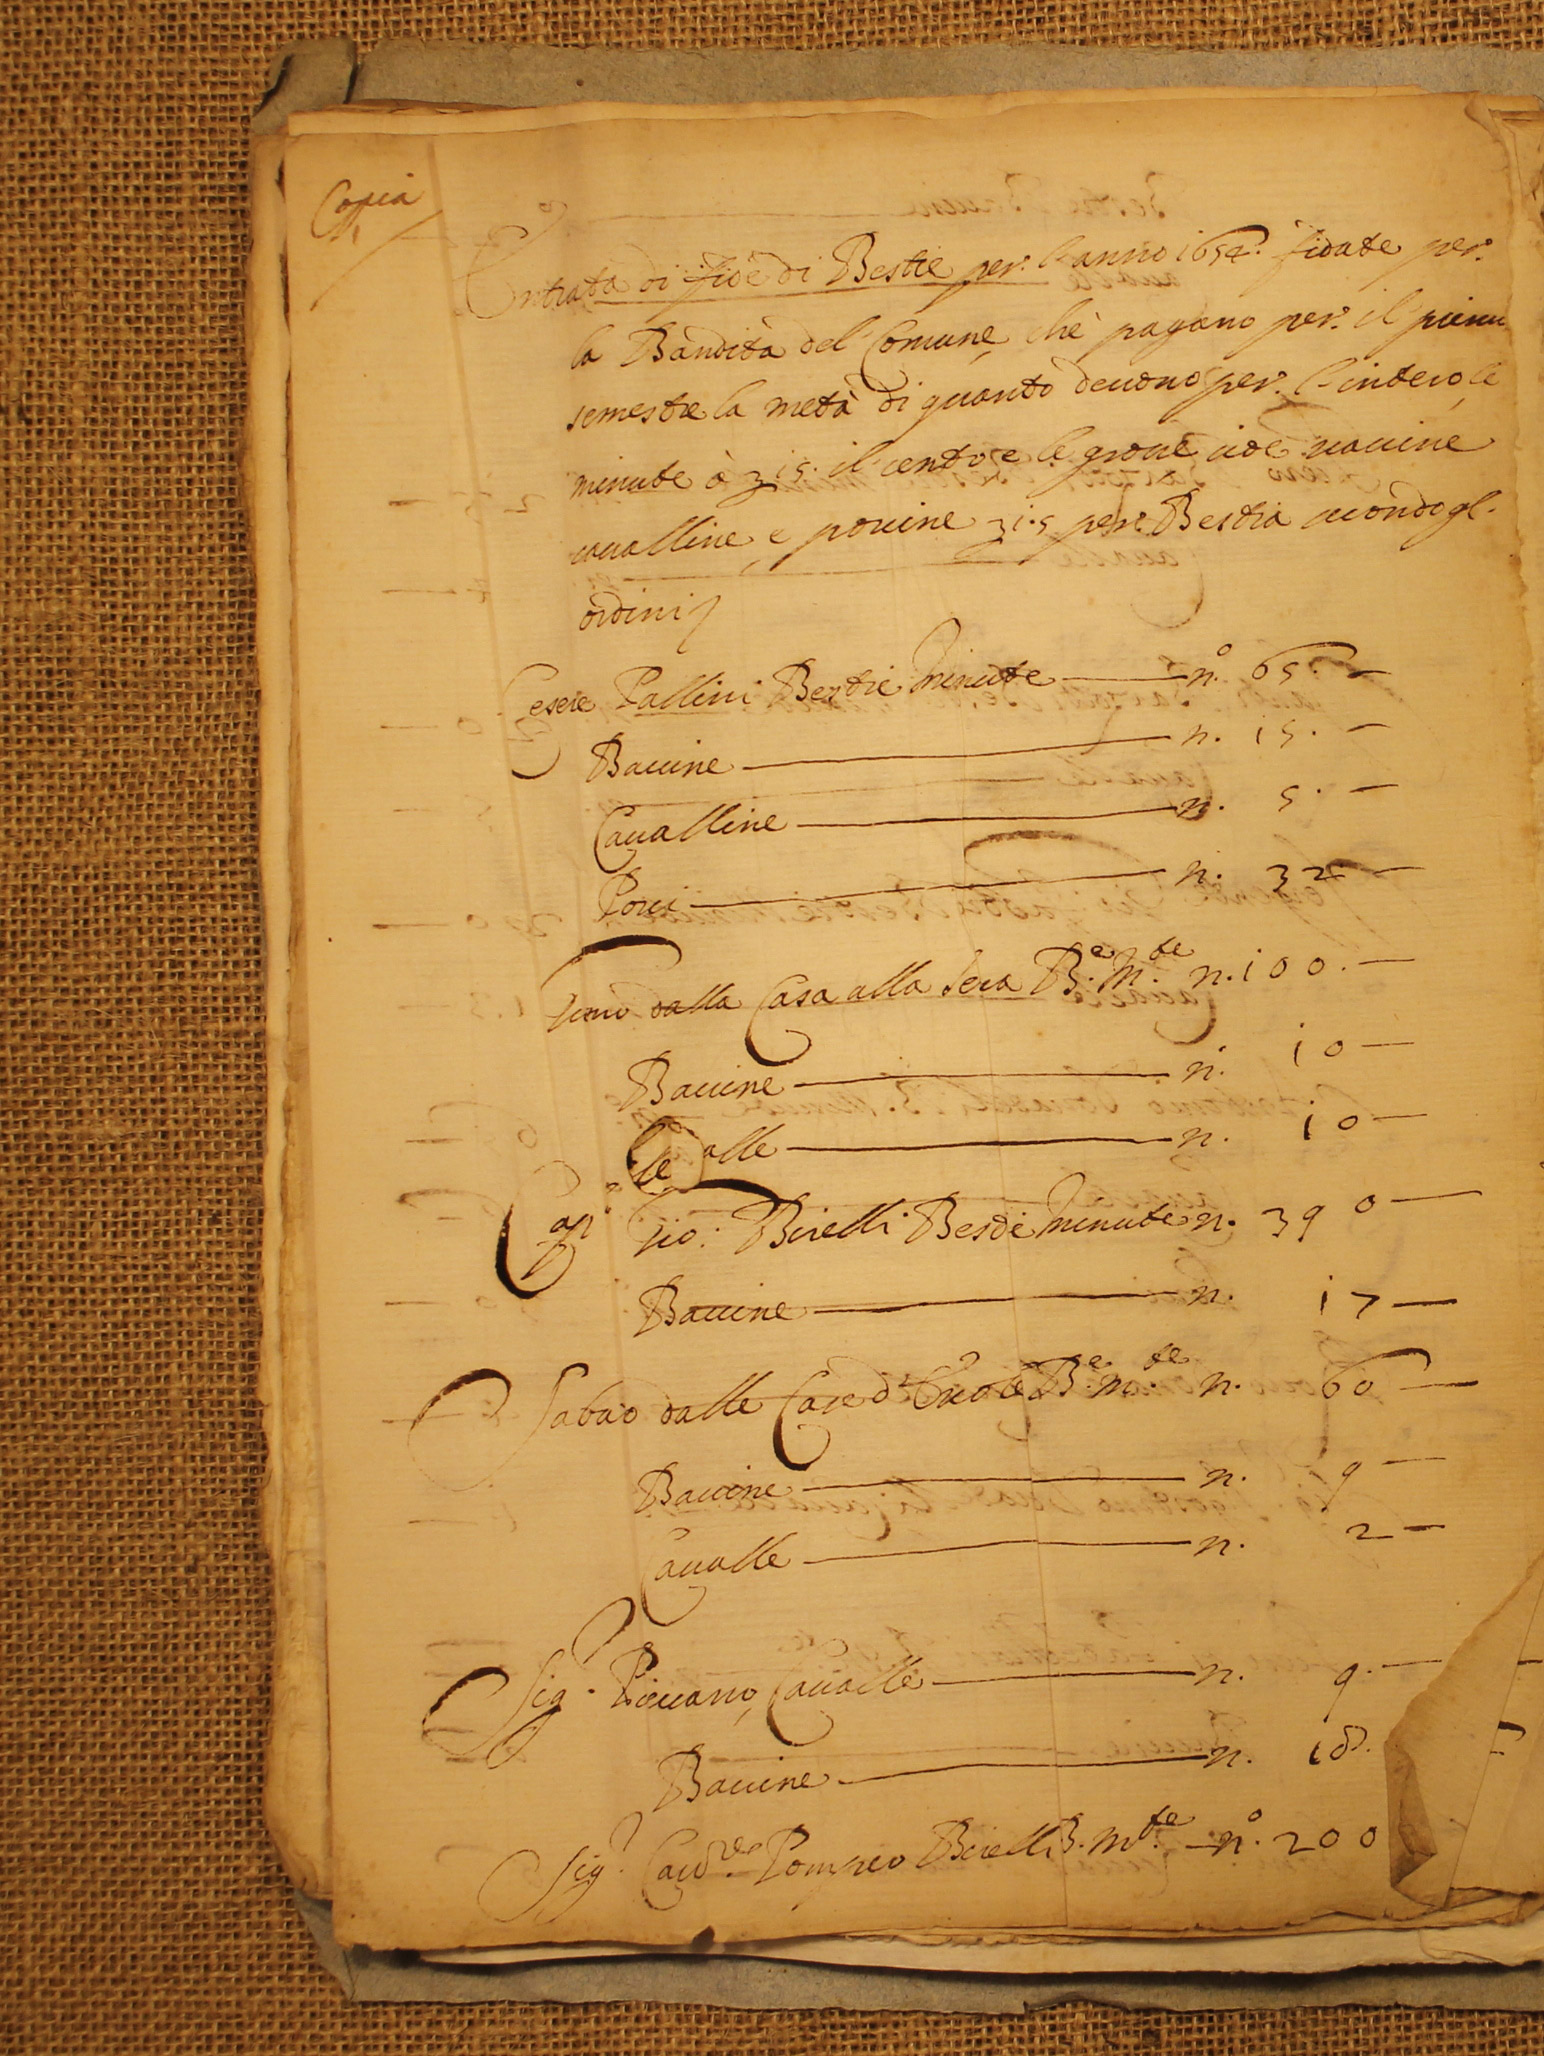 Copia
Entrata di fide di Bestie per l'anno 1654. fidate per
la Bandita del Comune, che pagano per il primo
semestre la metà di quanto deuono per l'intero, le
minute à z 15. il cento e le grosse cioè uaccine
caualline, e porcine z 1.5 per Bestia secondo gl.
ordini
Cesere Pallini Bestie Minute n.º 65.
Baccine n. 15.
Caualline n. 5.
Porci n. 32
dalla Casa alla Sera B.e M.te n. 100.
Baccine n. 10
Caualle n. 10
Cap.º Gio: Birelli Bestie Minute n. 390
Baccine n. 17
Fabiò dalle Case d' B.e m.te n. 60
Baccine n. 9
Caualle n. 2
Sig.r Piouano, Caualle n. 9.
Baccine n. 18.
Sig.r Cau.re Pompeo Birelli B. m.te n.º 200